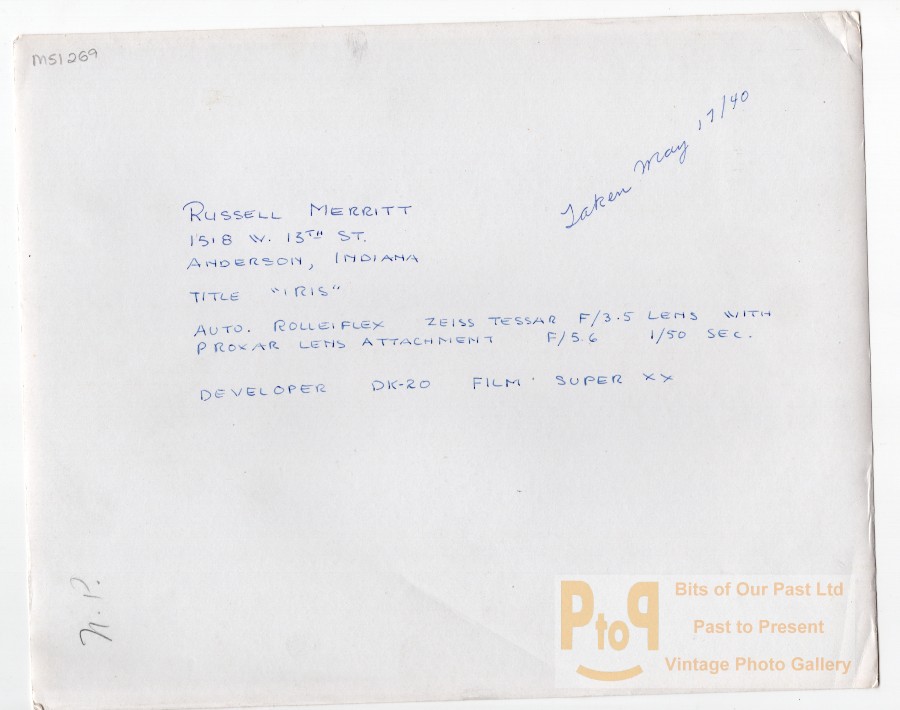 M51269
Taken May 17/40
RUSSELL MERRITT
1518 W. 13TH ST.
ANDERSON, INDIANA
TITLE "IRIS"
AUTO. ROLLEIFLEX ZEISS TESSAR F/3.5 LENS WITH
PROXAR LENS ATTACHMENT F/5.6 1/50 SEC.
DEVELOPER DK-20 FILM SUPER XX
N.P.
PtoP
Bits of Our Past Ltd
Past to Present
Vintage Photo Gallery